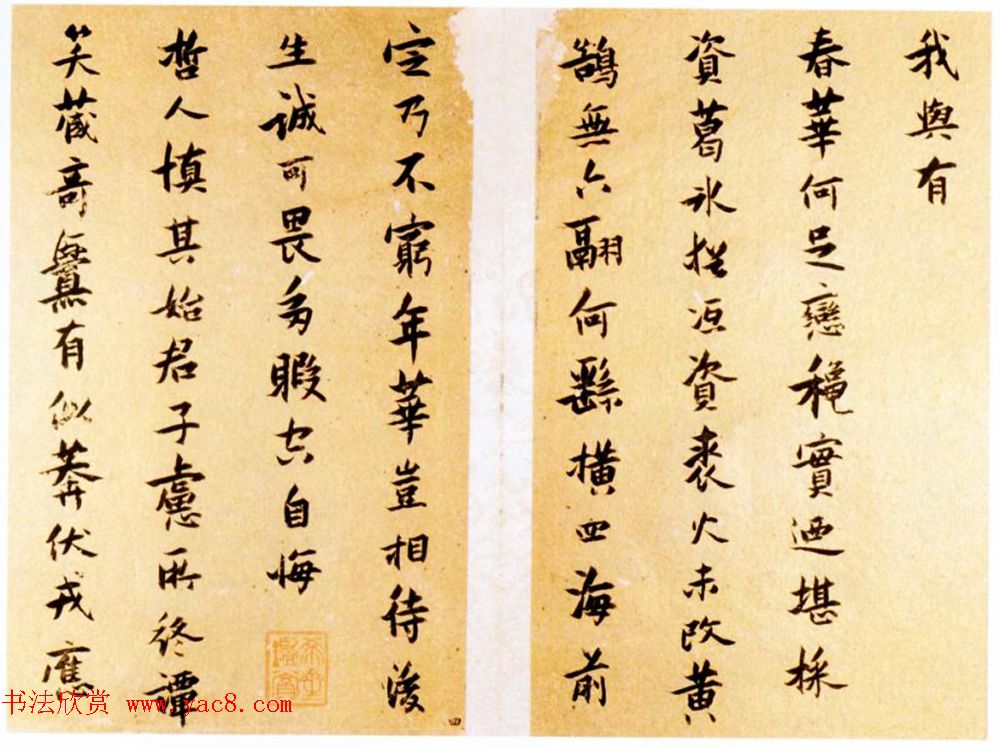 我與有
春華何足戀穠實迺堪採
資葛氷資裘火未改黃
鵠無六翮何繇橫四海前
定乃不窮年華豈相待後
生誠可畏多暇空自悔
哲人慎其始君子慮所終譚
笑蔵奇釁有似莽伏戎應
四
书法欣赏 www.yac8.com